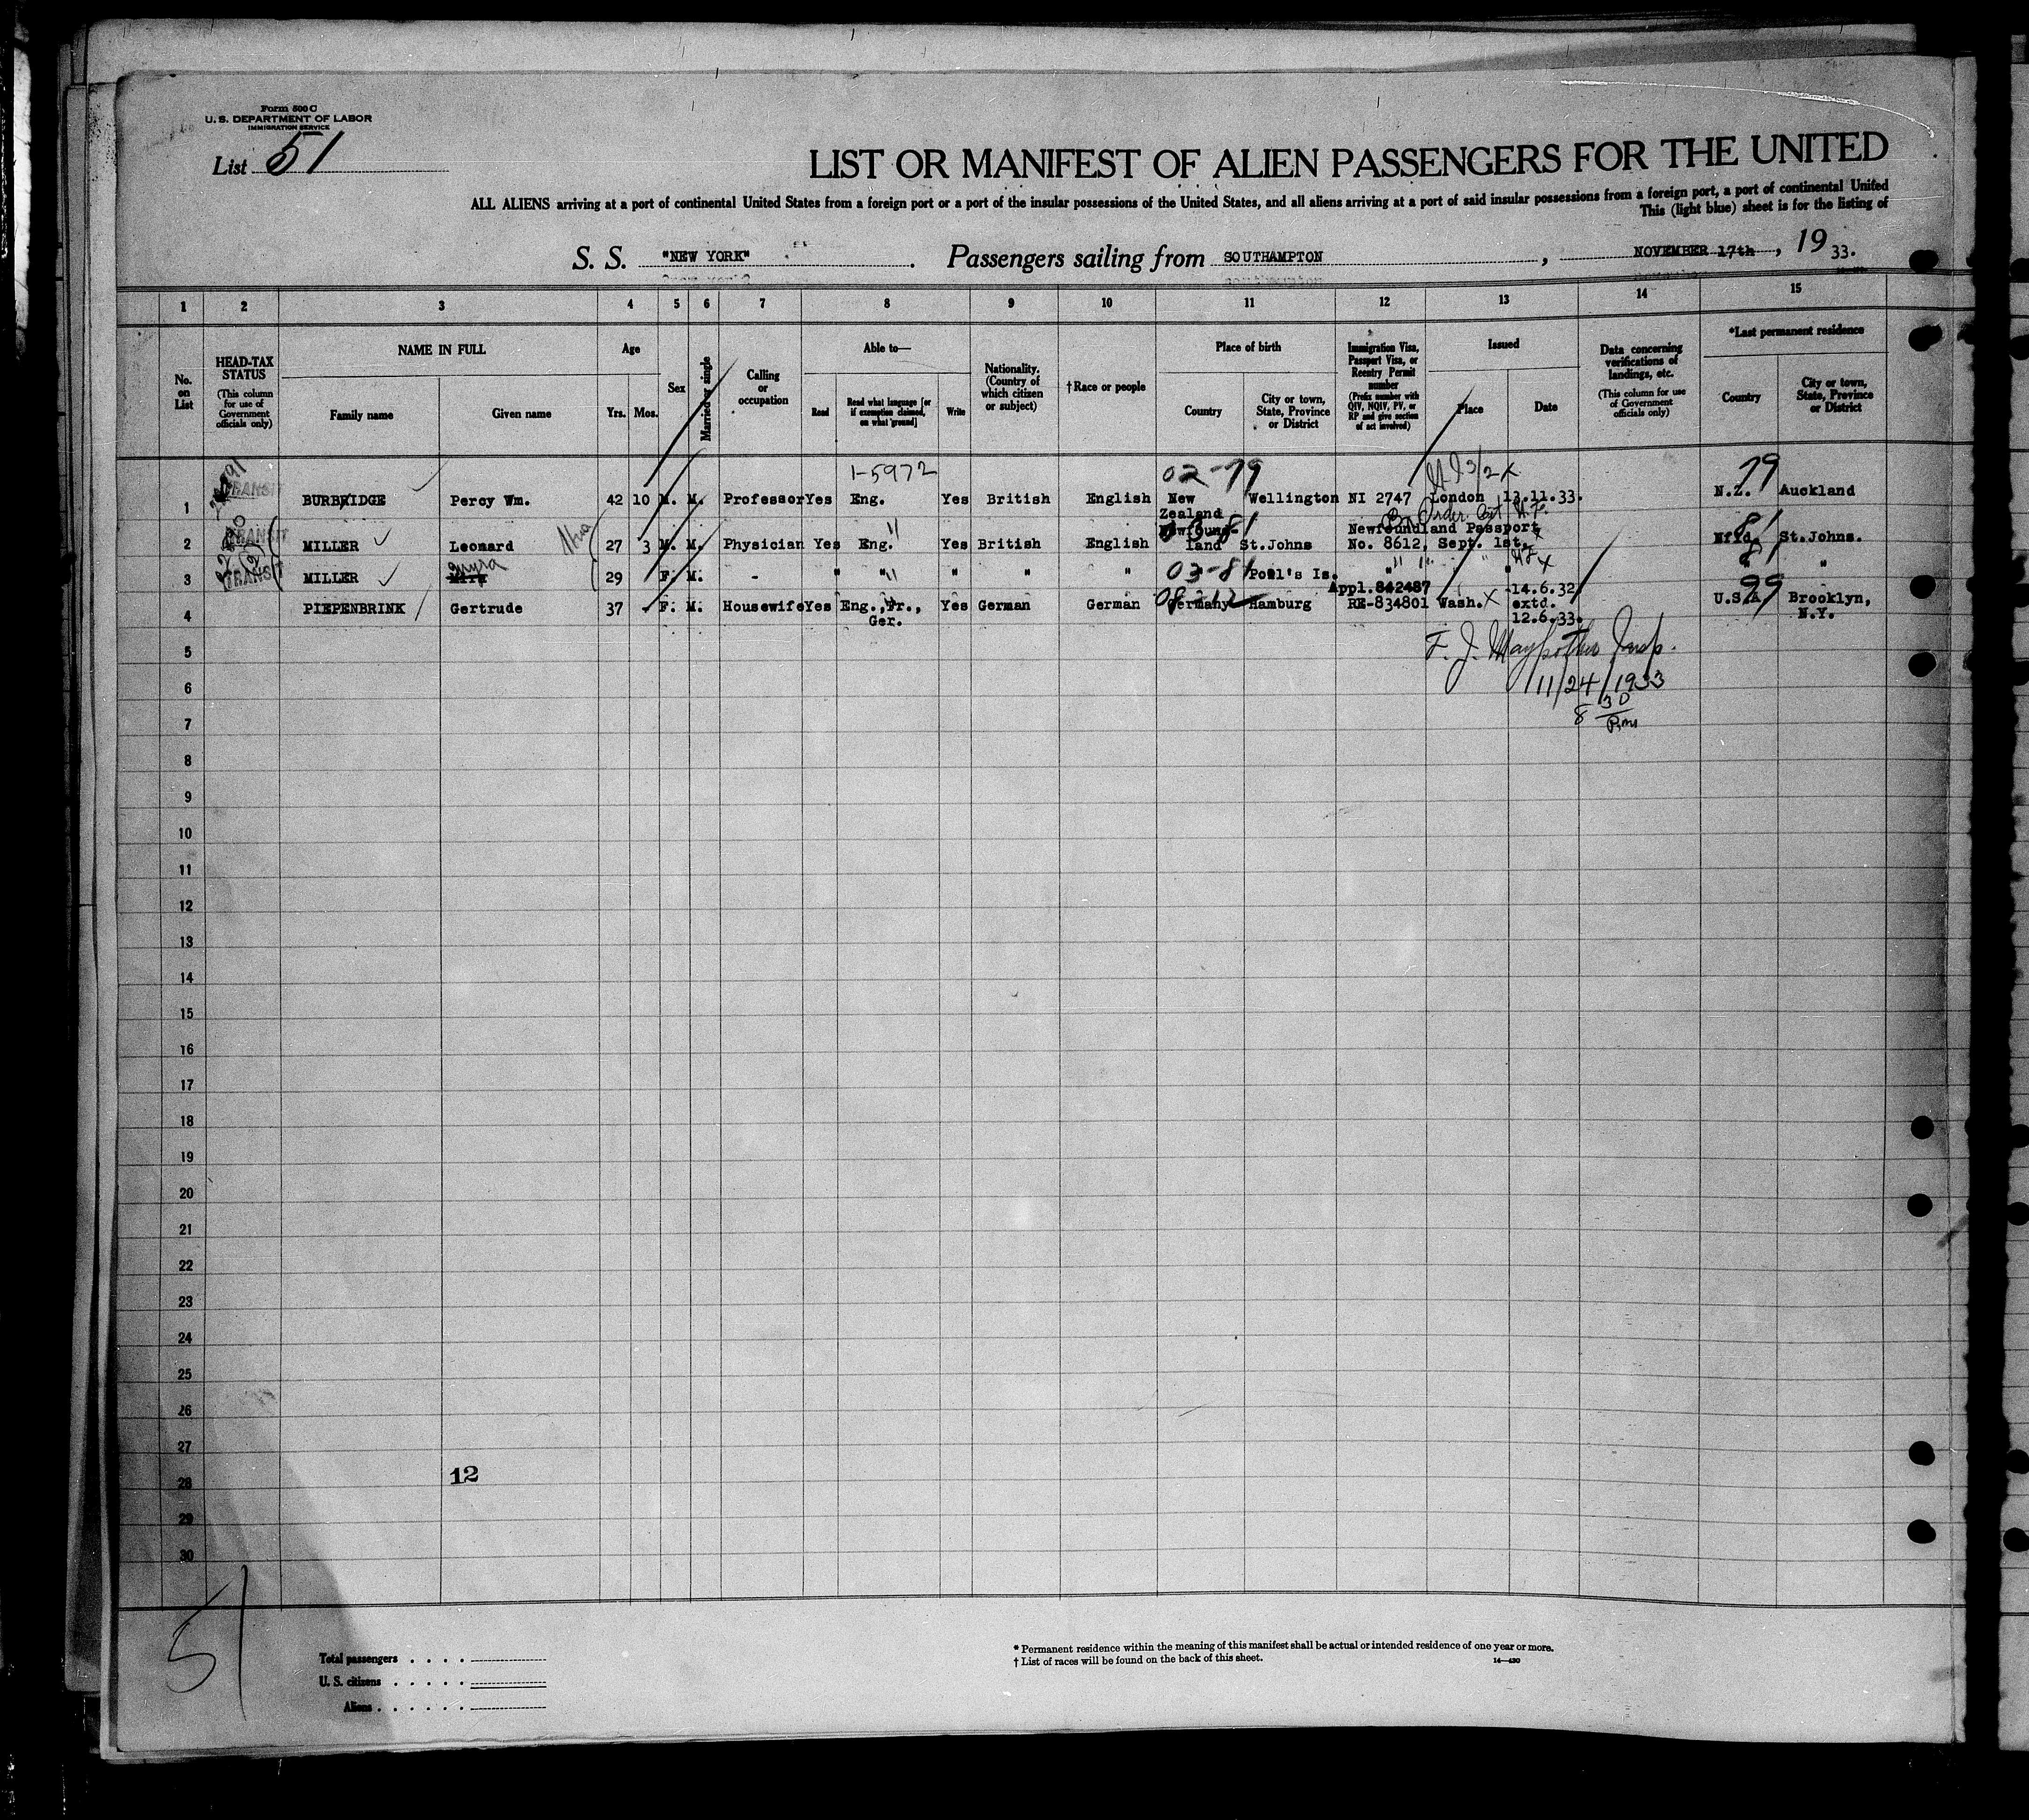 Form 500 C
U. S. DEPARTMENT OF LABOR
IMMIGRATION SERVICE
List 51
LIST OR MANIFEST OF ALIEN PASSENGERS FOR THE UNITED
ALL ALIENS arriving at a port of continental United States from a foreign port or a port of the insular possessions of the United States, and all aliens arriving at a port of said insular possessions from a foreign port, a port of continental United
This (light blue) sheet is for the listing of
S. S. "NEW YORK" Passengers sailing from SOUTHAMPTON, NOVEMBER 17th, 1933.
1 2 3 4 5 6 7 8 9 10 11 12 13 14 15
No. on List
HEAD-TAX STATUS
(This column for use of Government officials only)
NAME IN FULL
Family name
Given name
Age
Yrs. Mos.
Sex
Married or single
Calling or occupation
Able to—
Read
Read what language [or if exemption claimed, on what ground]
Write
Nationality. (Country of which citizen or subject)
†Race or people
Place of birth
Country
City or town, State, Province or District
Immigration Visa, Passport Visa, or Reentry Permit number
(Prefix number with QIV, NQIV, PV, or RP and give section of act involved)
Issued
Place
Date
Data concerning verifications of landings, etc.
(This column for use of Government officials only)
*Last permanent residence
Country
City or town, State, Province or District
1-5972 02-79 79
1 TRANSIT BURBRIDGE Percy Wm. 42 10 M. M. Professor Yes Eng. Yes British English New Zealand Wellington NI 2747 London 13.11.33. N.Z. Auckland
03-81 81
2 TRANSIT MILLER Leonard 27 3 M. M. Physician Yes Eng. " Yes British English Newfoundland St.Johns Newfoundland Passport No. 8612, Sept. 1st. Nffd. St.Johns.
Myra
3 TRANSIT MILLER 29 F. M. - " " " " " " 03-81 Pool's Is. " " " " 81 "
4 PIEPENBRINK Gertrude 37 - F. M. Housewife Yes Eng.,Fr., Ger. Yes German German Germany Hamburg Appl.842487 RE-834801 Wash. X 14.6.32 extd. 12.6.33. 99 U.S.A. Brooklyn, N.Y.
5
F. J. Insp.
6
11/24/1933
7
8 30 Pm
8
9
10
11
12
13
14
15
16
17
18
19
20
21
22
23
24
25
26
27
28 12
29
30
51
Total passengers
U. S. citizens
Aliens
* Permanent residence within the meaning of this manifest shall be actual or intended residence of one year or more.
† List of races will be found on the back of this sheet.
14—430